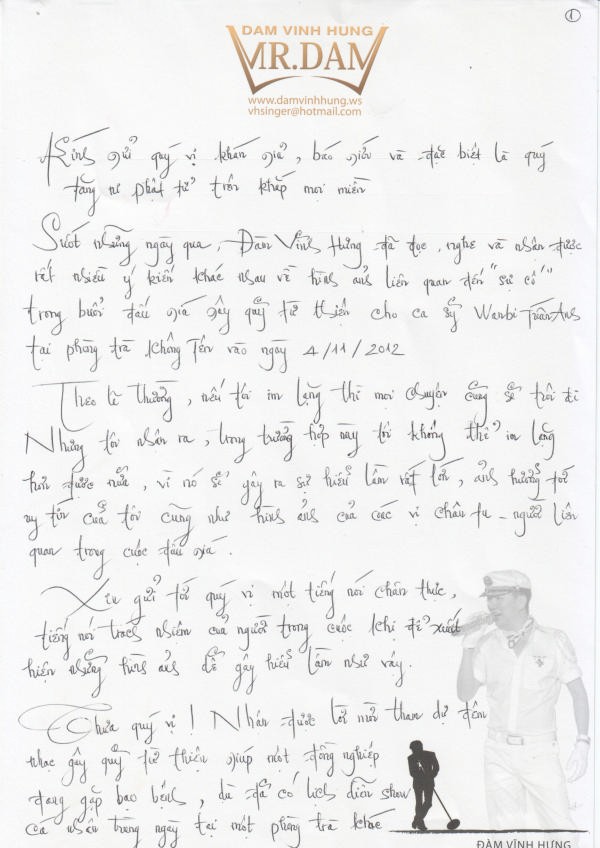 1
DAM VINH HUNG
MR.DAM
www.damvinhhung.ws
vhsinger@hotmail.com
Kính gửi quý vị khán giả, báo giới và đặc biệt là quý
tăng ni phật tử trên khắp mọi miền
Suốt những ngày qua, Đàm Vĩnh Hưng đã đọc, nghe và nhận được
rất nhiều ý kiến khác nhau về hình ảnh liên quan đến "sự cố"
trong buổi đấu giá gây quỹ từ thiện cho ca sỹ Wanbi Tuấn Anh
tại phòng trà Không Tên vào ngày 4/11/2012
Theo lẽ thường, nếu tôi im lặng thì mọi chuyện cũng sẽ trôi đi
Nhưng tôi nhận ra, trong trường hợp này tôi không thể im lặng
hơn được nữa, vì nó sẽ gây ra sự hiểu lầm rất lớn, ảnh hưởng tới
uy tín của tôi cũng như hình ảnh của các vị chân tu - người liên
quan trong cuộc đấu giá.
Xin gửi tới quý vị một tiếng nói chân thực,
tiếng nói trách nhiệm của người trong cuộc khi để xuất
hiện những hình ảnh dễ gây hiểu lầm như vậy.
Thưa quý vị! Nhận được lời mời tham dự đêm
nhạc gây quỹ từ thiện giúp một đồng nghiệp
đang gặp bạo bệnh, dù đã có lịch diễn show
cá nhân trùng ngày tại một phòng trà khác
ĐÀM VĨNH HƯNG